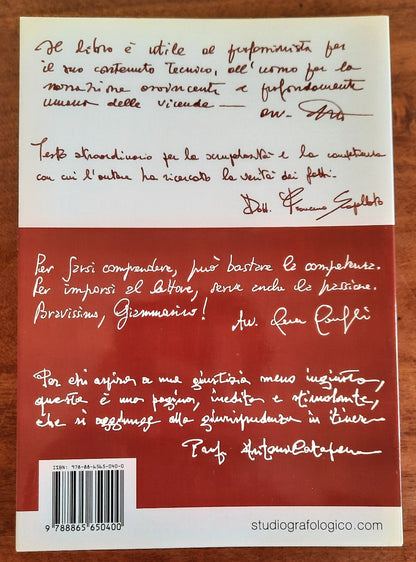 Il libro è utile al professionista per
il suo contenuto tecnico, all'uomo per la
narrazione avvincente e profondamente
umana delle vicende —
av.
Testo straordinario per la scrupolosità e la competenza
con cui l'autore ha ricercato la verità dei fatti.
Dott. Francesco
Per farsi comprendere, può bastare la competenza.
Per imporsi al lettore, serve anche la passione.
Bravissimo, Giammarino!
Av. Luca
Per chi aspira a una giustizia meno ingiusta,
questa è una pagina, inedita e stimolante,
che si aggiunge alla giurisprudenza in itinere
Prof. Antonio
ISBN: 978-88-6565-040-0
9 788865 650400
studiografologico.com